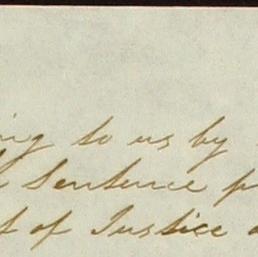 ing to us by
Sentence
of Justice